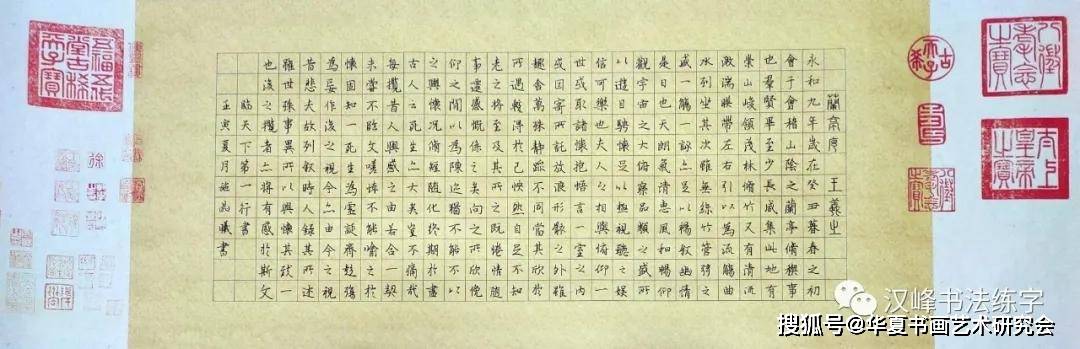 蘭亭序 王羲之
永和九年歲在癸丑暮春之初
會于會稽山陰之蘭亭脩禊事
也群賢畢至少長咸集此地有
崇山峻領茂林脩竹又有清流
激湍暎帶左右引以為流觴曲
水列坐其次雖無絲竹管弦之
盛一觴一詠亦足以暢敘幽情
是日也天朗氣清惠風和暢仰
觀宇宙之大俯察品類之盛所
以遊目騁懷足以極視聽之娛
信可樂也夫人之相與俯仰一
世或取諸懷抱悟言一室之內
或因寄所託放浪形骸之外雖
趣舍萬殊靜躁不同當其欣於
所遇暫得於己怏然自足不知
老之將至及其所之既惓情隨
事遷感慨係之矣向之所欣俛
仰之閒以為陳迹猶不能不以
之興懷況脩短隨化終期於盡
古人云死生亦大矣豈不痛哉
每攬昔人興感之由若合一契
未嘗不臨文嗟悼不能喻之於
懷固知一死生為虛誕齊彭殤
為妄作後之視今亦由今之視
昔悲夫故列敘時人錄其所述
雖世殊事異所以興懷其致一
也後之攬者亦將有感於斯文
臨天下第一行書
壬寅夏月 曦書
汉峰书法练字
搜狐号@华夏书画艺术研究会